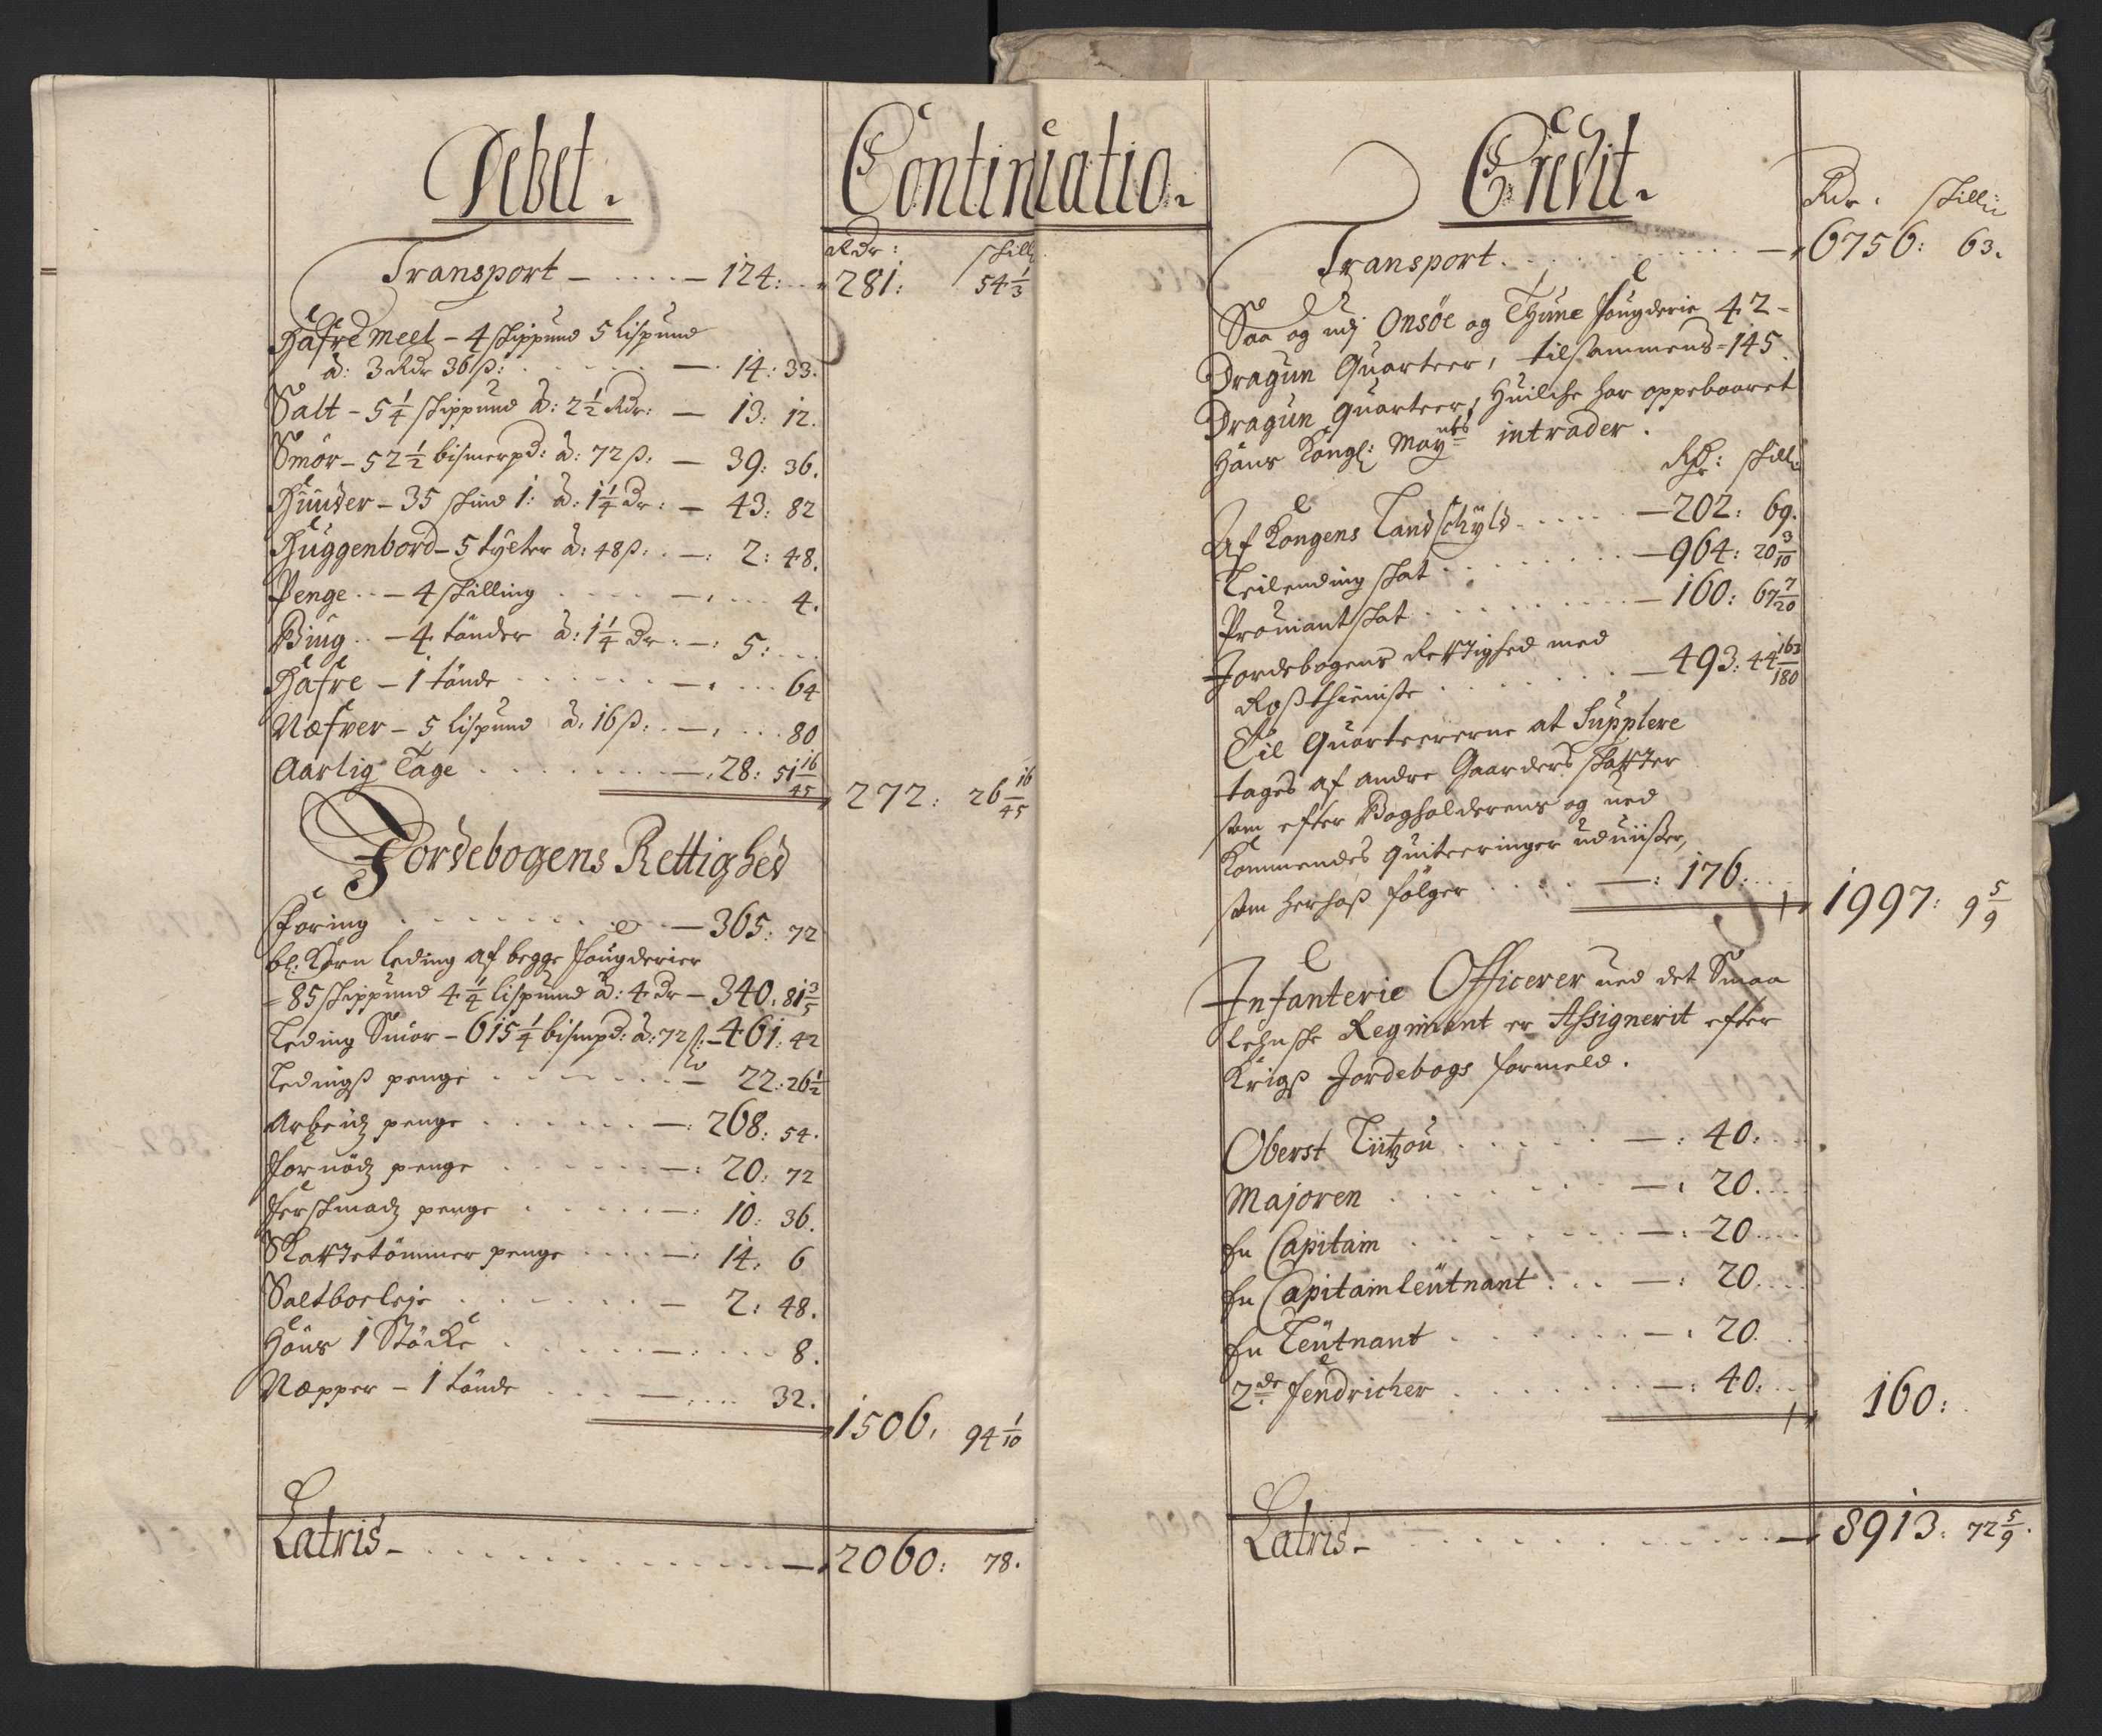 Debet.
Continuatio.
Rdr: skill:
Transport – 124: 281: 54 1/3
Hafre Meel – 4 skippund 5 Lispund
â: 3 Rdr 36 ß: – 14: 33.
Salt – 5 1/4 skippund â: 2 1/2 Rdr: – 13: 12.
Smör – 52 1/2 bismerpd: â: 72 ß: – 39: 36.
Huuder – 35 skind 1: â: 1 1/4 Dr: – 43: 82
Huggenbord – 5 tÿlter â: 48 ß: – 2: 48.
Penge – 4 skilling – 4.
Biug – 4 tönder â: 1 1/4 Dr: – 5:
Hafre – 1 tönde – 64
Næfver – 5 Lispund â: 16 ß: – 80
Aarlig Tage – 28: 51 16/45
272: 26 16/45
Jordebogens Rettighed
Foring – 365: 72
bl: Korn leding af begge fougderier
85 skippund 4 1/4 lispund â: 4 Dr – 340: 81 3/5
Leding Smör – 615 1/4 bismpd: â: 72 ß: – 461: 42
Ledingß penge – 22: 26 1/2
Arbeidz penge – 268: 54.
Fornödz penge – 20: 72
Ferskmadz penge – 10: 36.
Skattetömmer penge – 14: 6
Saltboeleje – 2: 48.
Höns 1 Stöcke – 8.
Næpper – 1 tönde – 32.
1506: 94 1/10
Latris – 2060: 78.
Credit.
Rdr: skilli:
Transport – 6756: 63.
Saa og udj Onsöe og Thune fougderie 42 –
Dragun Quarteer, tilsammens – 145.
Dragun Quarteer, Huilche har oppebaaret
Hans Kongl: Mayts intrader.
Rdr: skill:
Af Kongens Landschyld – 202: 69.
Leilending skat – 964: 20 3/10
Prouiant skat – 160: 67 7/20
Jordebogens Rettighed med
Roßthieniste – 493: 44 163/180
Til Quarteererne at Supplere
tages af andre Gaarders skatter
som efter Bogholderens og ved
kommendes quiteeringer uduiser,
som herhoß følger – 176:
1997: 9 5/9
Infanterie Officerer ved det Smaa
lehnske Regiment er Assignerit efter
Krigß Jordebogs formeld.
Oberst Lützou – 40:
Majoren – 20.
En Capitain – 20
En Capitainleutnant – 20
En Leutnant – 20
2de Fendricher – 40:
160:
Latris – 8913: 72 5/9.